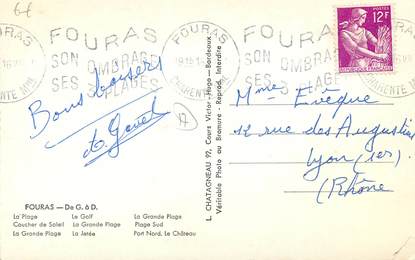 64
FOURAS
SON OMBRAGE
SES 3 PLAGES
FOURAS
CHARENTE MME
FOURAS
SON OMBRAGE
SES 3 PLAGES
POSTES
12F
Bons baisers
Mme Evêque
12 rue des Augustins
Lyon (1er)
(Rhône)
L. CHATAGNEAU 97, Cours Victor-Hugo - Bordeaux.
Véritable Photo au Bromure - Reprod. Interdite
FOURAS — De G. à D.
La Plage Le Golf La Grande Plage
Coucher de Soleil La Grande Plage Plage Sud
La Grande Plage La Jetée Port Nord, Le Château